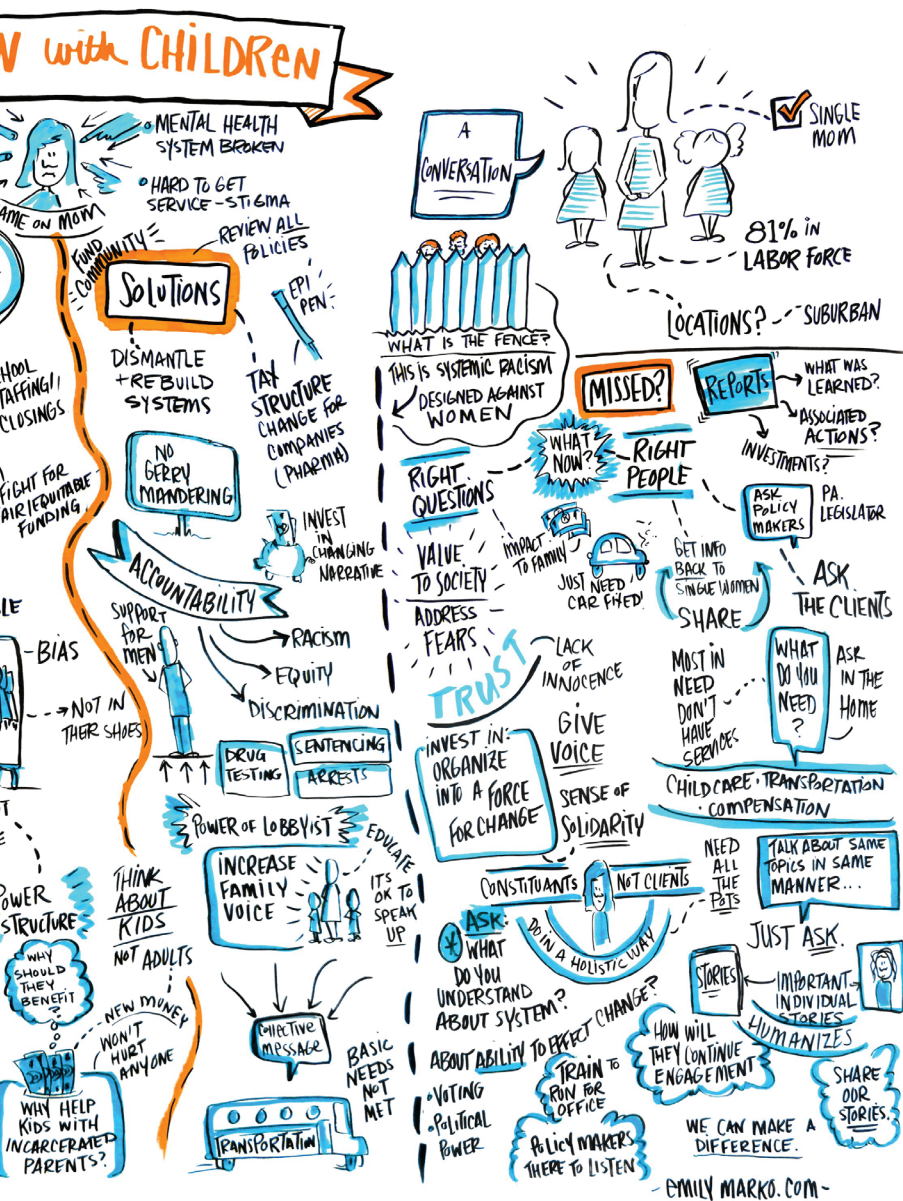 N with CHiLDReN
MENTAL HEALTH
SYSTEM BROKEN
HARD TO GET
SERVICE-STIGMA
AME ON MOM
FUND
COMMUNITY
REVIEW ALL
POLICIES
SOLUTIONS
EPI
PEN
DISMANTLE
+REBUILD
SYSTEMS
TAX
STRUCTURE
CHANGE FOR
COMPANIES
(PHARMA)
HOOL
TAFFING/
CLOSINGS
FIGHT FOR
AIR/EQUITABLE
FUNDING
NO
GERRY
MANDERING
INVEST
IN
CHANGING
NARRATIVE
ACCOUNTABILITY
SUPPORT
FOR
MEN
RACISM
EQUITY
DISCRIMINATION
LE
-BIAS
NOT IN
THEIR SHOES
DRUG
TESTING
SENTENCING
ARRESTS
POWER OF LOBBYIST
EDUCATE
INCREASE
FAMILY
VOICE
IT'S
OK TO
SPEAK
UP
OWER
STRUCTURE
THINK
ABOUT
KIDS
NOT ADULTS
WHY
SHOULD
THEY
BENEFIT?
NEW MONEY
WON'T
HURT
ANYONE
WHY HELP
KIDS WITH
INCARCERATED
PARENTS?
COLLECTIVE
MESSAGE
BASIC
NEEDS
NOT
MET
TRANSPORTATION
A
CONVERSATION
SINGLE
MOM
81% IN
LABOR FORCE
LOCATIONS? -- SUBURBAN
WHAT IS THE FENCE?
THIS IS SYSTEMIC RACISM
DESIGNED AGAINST
WOMEN
MISSED?
REPORTS
WHAT WAS
LEARNED?
ASSOCIATED
ACTIONS?
INVESTMENTS?
WHAT
NOW?
RIGHT
QUESTIONS
RIGHT
PEOPLE
ASK
POLICY
MAKERS
PA.
LEGISLATOR
VALUE
TO SOCIETY
ADDRESS
FEARS
IMPACT
TO FAMILY
JUST NEED
CAR FIXED!
GET INFO
BACK TO
SINGLE WOMEN
SHARE
ASK
THE CLIENTS
TRUST
LACK
OF
INNOCENCE
MOST IN
NEED
DON'T
HAVE
SERVICES
WHAT
DO YOU
NEED
?
ASK
IN THE
HOME
INVEST IN:
ORGANIZE
INTO A FORCE
FOR CHANGE
GIVE
VOICE
SENSE OF
SOLIDARITY
CHILDCARE • TRANSPORTATION
• COMPENSATION
CONSTITUANTS NOT CLIENTS
DO IN A HOLISTIC WAY
NEED
ALL
THE
POTS
TALK ABOUT SAME
TOPICS IN SAME
MANNER...
JUST ASK.
* ASK:
WHAT
DO YOU
UNDERSTAND
ABOUT SYSTEM?
ABOUT ABILITY TO EFFECT CHANGE?
•VOTING
•POLITICAL
POWER
STORIES
IMPORTANT
INDIVIDUAL
STORIES
HUMANIZES
HOW WILL
THEY CONTINUE
ENGAGEMENT
TRAIN TO
RUN FOR
OFFICE
POLICY MAKERS
THERE TO LISTEN
SHARE
OUR
STORIES.
WE CAN MAKE A
DIFFERENCE.
-EMILY MARKO.COM-